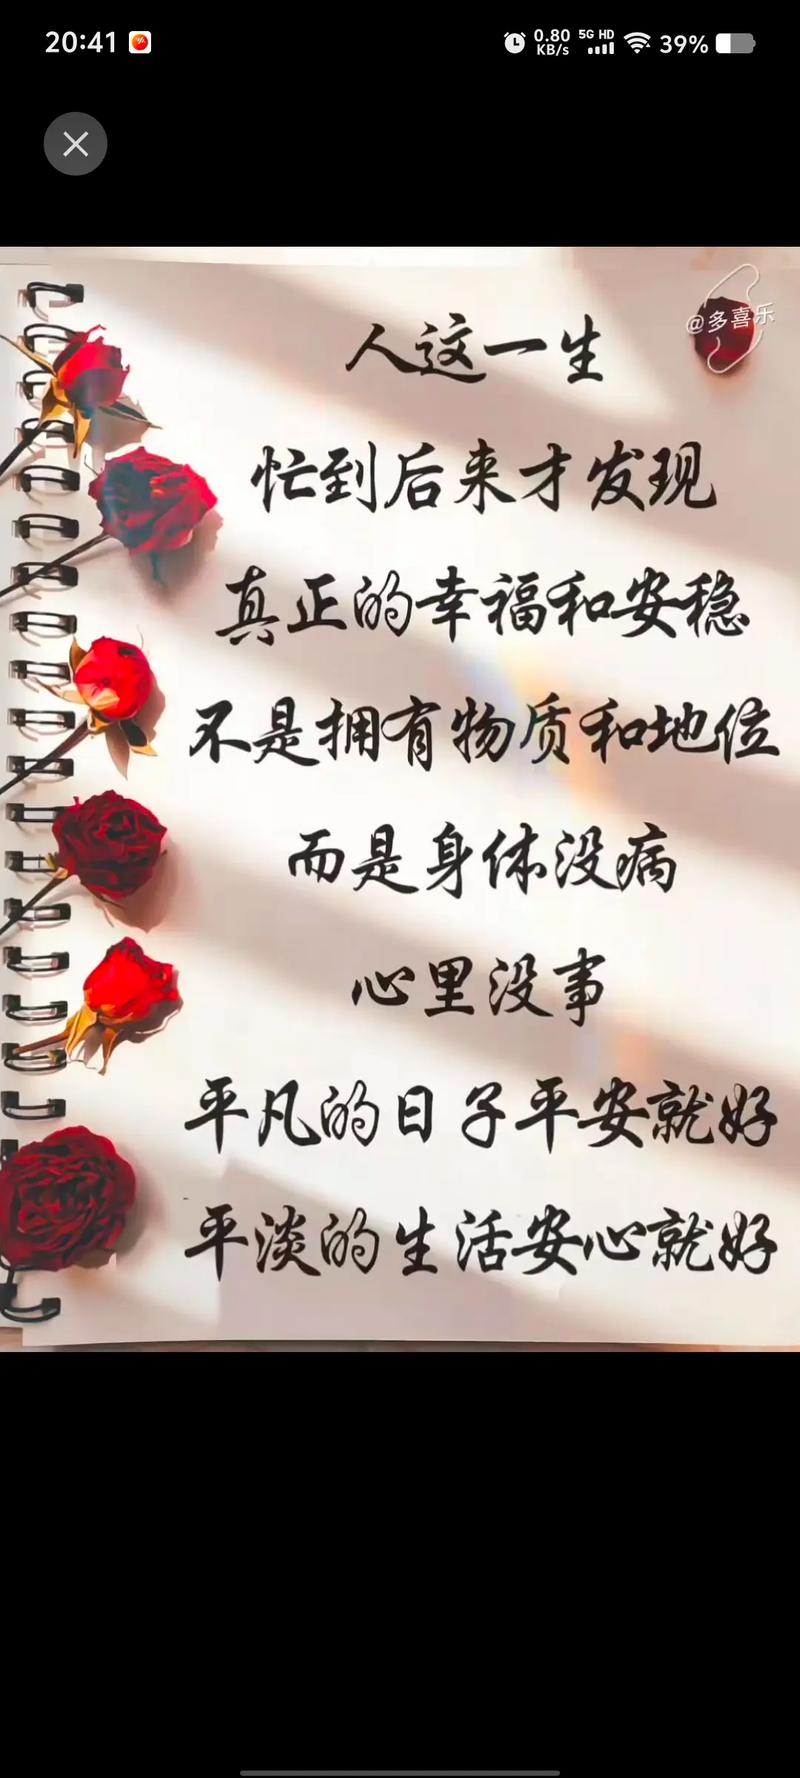 20:41
0.80 KB/s 5G HD 39%
@多喜乐
人这一生
忙到后来才发现
真正的幸福和安稳
不是拥有物质和地位
而是身体没病
心里没事
平凡的日子平安就好
平淡的生活安心就好